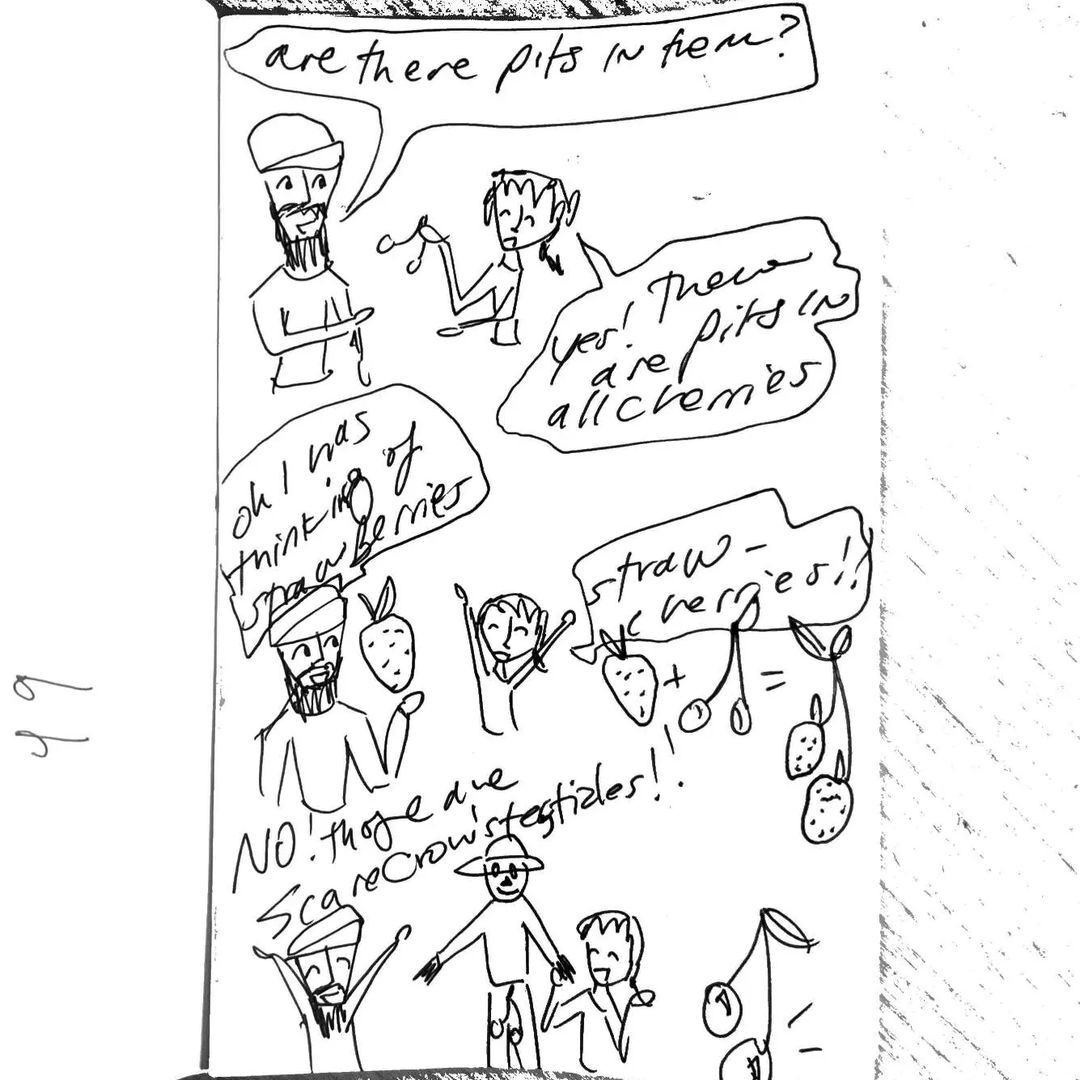 are there pits in them?
yes! There
are pits in
all cherries
oh I was
thinking of
strawberries
straw-
cherries!!
+ =
NO! those are
Scarecrow's testicles!!
49